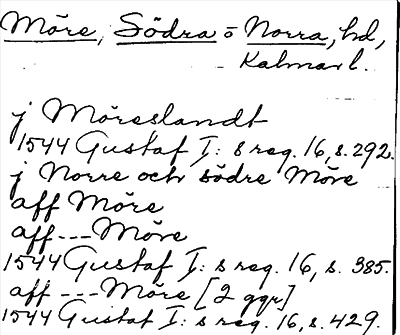 Möre, Södra o Norra, hd,
Kalmar l.
j Möreslandt
1544 Gustaf I: s reg. 16, s. 292.
j Norre och södre Möre
aff Möre
aff --- Möre
1544 Gustaf I: s reg. 16, s. 385.
aff --- Möre [2 ggr]
1544 Gustaf I: s reg. 16, s. 429.